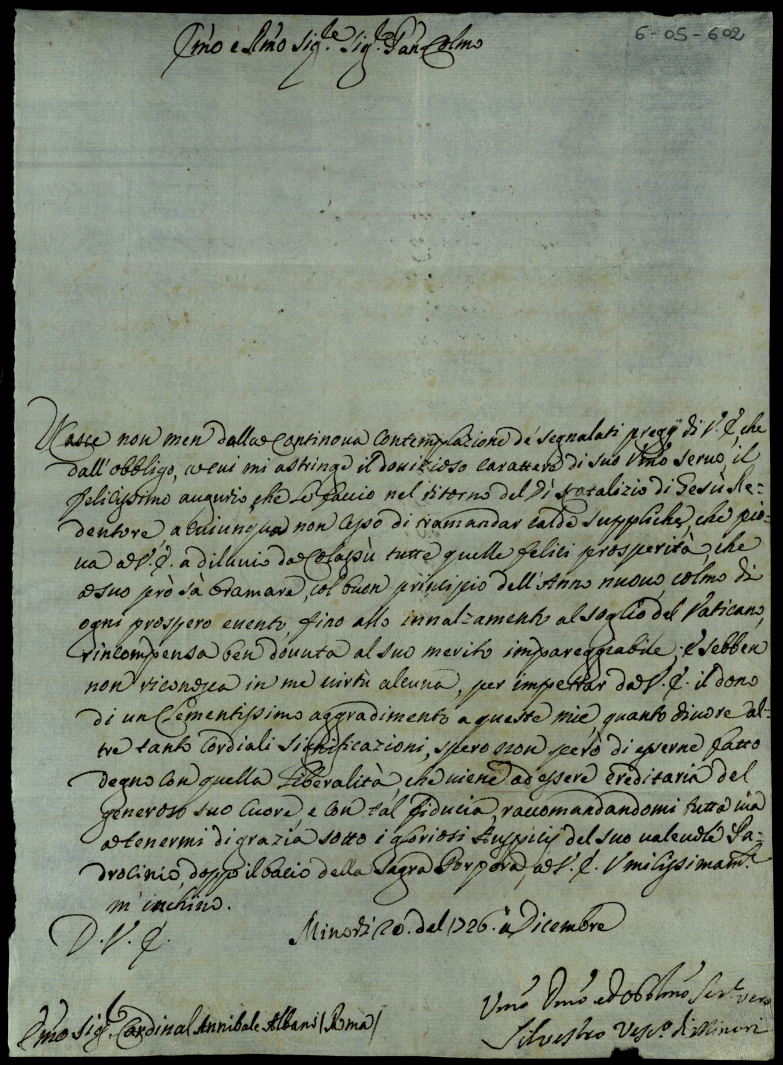 6-05-602
Em͂o e Rm͂o Sig.re Sig.re Pan Colmo
Nasce non men dalla continova contemplazione de' segnalati pregij di V. E. che
dall'obbligo, a cui mi astringe il dovizioso carattere di suo Um͂o servo, il
felicissimo augurio, che Le faccio nel ritorno del Dì Natalizio di Gesù Re-
dentore, a cui non cesso di tramandar calde suppliche, che pio-
va a V. E. a diluvio da colassù tutte quelle felici prosperità, che
a suo prò sà bramare, col buon principio dell'Anno nuovo, colmo di
ogni prospero evento, fino allo innalzamento al soglio del Vaticano,
rincompensa ben dovuta al suo merito impareggiabile; e sebben
non riconosca in me virtù alcuna, per impetrar da V. E. il dono
di un Clementissimo aggradimento a queste mie quanto divote al-
tre tanto cordiali significazioni, spero non però di esserne fatto
degno con quella Liberalità, che viene ad essere ereditaria del
generoso suo Cuore, e con tal fiducia, raccomandandomi tutta via
a tenermi di grazia sotto i gloriosi Auspicij del suo valevole Pa-
drocinio, doppo il bacio della Sagra Porpora, a V. E. Umilissimam.te
m'inchino.
D. V. E.
Minori 20. del 1726. Dicembre
Em͂o Sig.r Cardinal Annibale Albani (Roma)
Um͂o Dm͂o ed Obblm͂o Ser.re vero
Silvestro Vesc.o di Minori